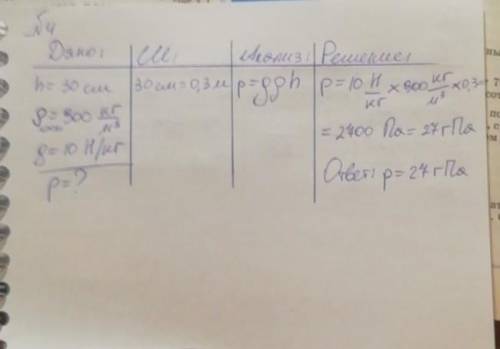 №4
Дано: СИ: Анализ: Решение:
h = 30 см 30 см = 0,3 м p = ρgh p = 10 Н/кг × 900 кг/м³ × 0,3
ρ = 900 кг/м³ = 2700 Па = 27 гПа
g = 10 Н/кг
p = ? Ответ: p = 27 гПа